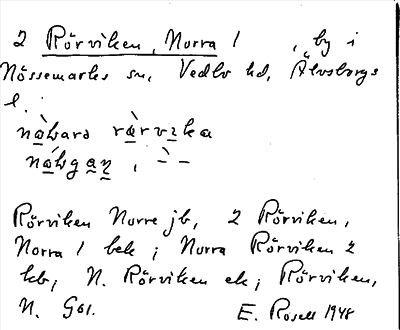 2 Rörviken, Norra 1 , by i
Nössemarks sn, Vedbo hd, Älvsborgs
l.
Rörviken Norre jb, 2 Rörviken,
Norra 1 bek ; Norra Rörviken 2
kb, N. Rörviken ek; Rörviken,
N. GSl. E. Rosell 1948